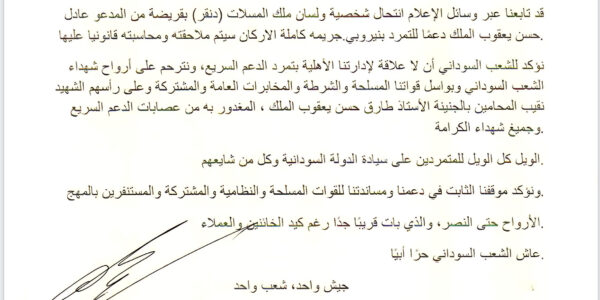 قد تابعنا عبر وسائل الإعلام انتحال شخصية ولسان ملك المسلات (دنقر) بقريضة من المدعو عادل
حسن يعقوب الملك دعمًا للتمرد بنيروبي.جريمه كاملة الاركان سيتم ملاحقته ومحاسبته قانونيا عليها.
نؤكد للشعب السوداني أن لا علاقة لإدارتنا الأهلية بتمرد الدعم السريع، ونترحم على أرواح شهداء
الشعب السوداني وبواسل قواتنا المسلحة والشرطة والمخابرات العامة والمشتركة وعلى رأسهم الشهيد
نقيب المحامين بالجنينة الأستاذ طارق حسن يعقوب الملك ، المغدور به من عصابات الدعم السريع
وجميع شهداء الكرامة.
الويل كل الويل للمتمردين على سيادة الدولة السودانية وكل من شايعهم.
ونؤكد موقفنا الثابت في دعمنا ومساندتنا للقوات المسلحة والنظامية والمشتركة والمستنفرين بالمهج.
الأرواح حتى النصر، والذي بات قريبًا جدًا رغم كيد الخائنين والعملاء.
عاش الشعب السوداني حرًا أبيًا.
جيش واحد، شعب واحد